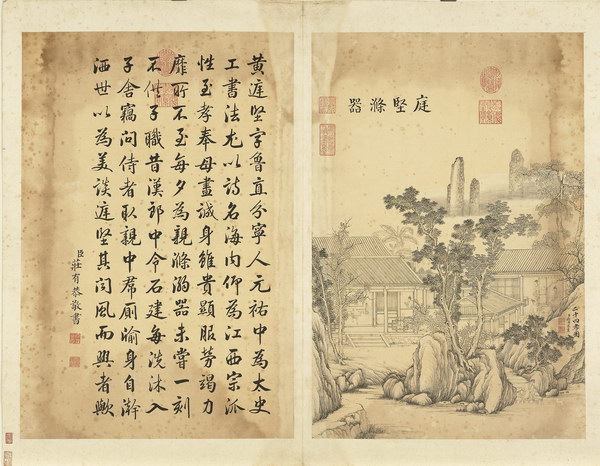 庭堅滌器
二十四孝圖
黃庭堅字魯直分寧人元祐中為太史
工書法尤以詩名海内仰為江西宗派
性至孝奉母盡誠身雖貴顯服勞竭力
靡所不至每夕為親滌溺器未嘗一刻
不供子職昔漢郎中令石建每洗沐入
子舍竊問侍者取親中帬廁牏身自澣
洒世以為美談庭堅其聞風而興者歟
臣莊有恭敬書